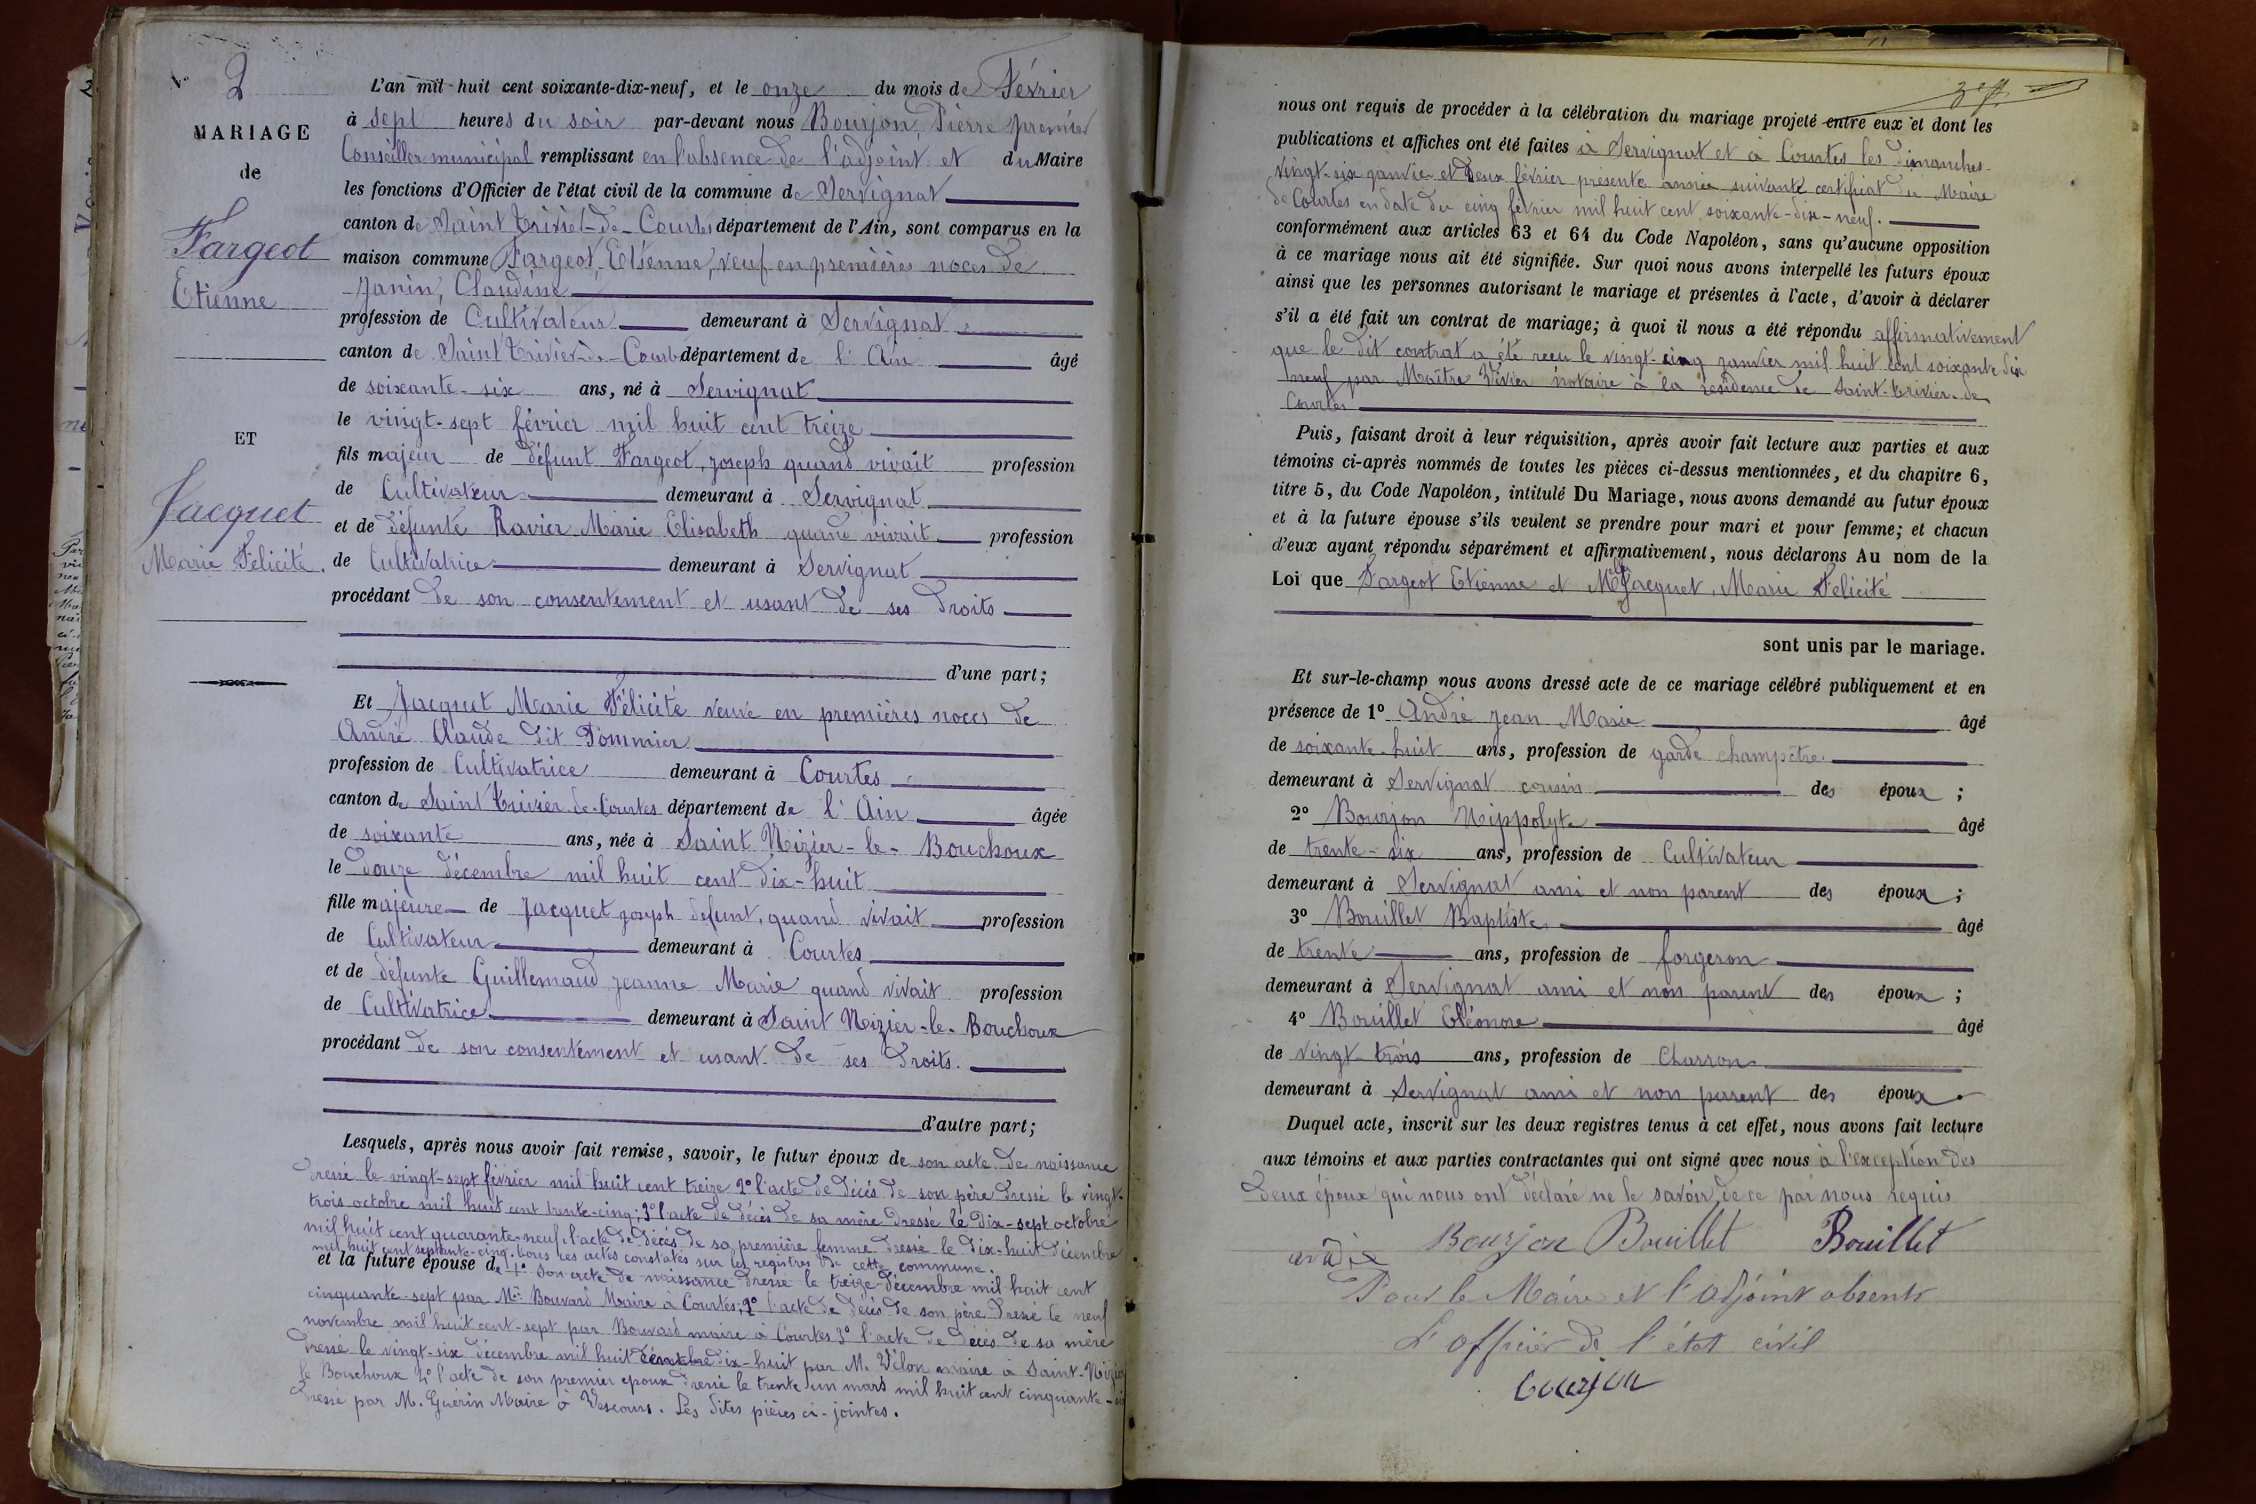 2
MARIAGE
de
Fargeot
Etienne
ET
Jacquet
Marie Félicité.
L'an mil-huit cent soixante-dix-neuf, et le onze du mois de Février
à sept heures du soir par-devant nous Bourjon, Pierre premier
Conseiller municipal remplissant en l'absence de l'adjoint et du Maire
les fonctions d'Officier de l'état civil de la commune de Servignat
canton de Saint Trivier-de-Courtes département de l'Ain, sont comparus en la
maison commune Fargeot, Etienne, veuf en premières noces de
Janin, Claudine
profession de Cultivateur demeurant à Servignat
canton de Saint Trivier-de-Courtes département de l'Ain âgé
de soixante-six ans, né à Servignat
le vingt-sept février mil huit cent treize
fils majeur de défunt Fargeot, Joseph quand vivait profession
de Cultivateur demeurant à Servignat
et de défunte Ravier Marie Elisabeth quand vivait profession
de Cultivatrice demeurant à Servignat
procédant de son consentement et usant de ses droits
d'une part;
Et Jacquet Marie Félicité veuve en premières noces de
André Claude dit Pommier
profession de Cultivatrice demeurant à Courtes
canton de Saint Trivier-de-Courtes département de l'Ain âgée
de soixante ans, née à Saint Nizier-le-Bouchoux
le douze décembre mil huit cent dix-huit
fille majeure de Jacquet Joseph defunt, quand vivait profession
de Cultivateur demeurant à Courtes
et de défunte Guillemaud Jeanne Marie quand vivait profession
de Cultivatrice demeurant à Saint Nizier-le-Bouchoux
procédant de son consentement et usant de ses droits.
d'autre part;
Lesquels, après nous avoir fait remise, savoir, le futur époux de son acte de naissance
dressé le vingt-sept février mil huit cent treize 2° l'acte de décès de son père dressé le vingt-
trois octobre mil huit cent trente-cinq; 3° l'acte de décès de sa mère dressé le dix-sept octobre
mil huit cent quarante-neuf. l'acte de décès de sa première femme dressé le dix-huit décembre
mil huit cent septante-cinq. tous ces actes constatés sur les registres de cette commune.
et la future épouse de 1° son acte de naissance dressé le treize décembre mil huit cent
cinquante-sept par Mr Bouvard Maire à Courtes; 2° l'acte de décès de son père dressé le neuf
novembre mil huit cent-sept par Bouvard maire à Courtes 3° l'acte de décès de sa mère
dressé le vingt-six décembre mil huit dix-huit par M. Vélon maire à Saint-Nizier
le Bouchoux 4° l'acte de son premier epoux dressé le trente un mars mil huit cent cinquante-
dressé par M. Guérin Maire à Vescours. Les dites pièces ci-jointes.
nous ont requis de procéder à la célébration du mariage projeté entre eux et dont les
publications et affiches ont été faites à Servignat et à Courtes les dimanches
vingt-six janvier et deux février présente année suivant certificat du Maire
de Courtes en date du cinq février mil huit cent soixante-dix-neuf.
conformément aux articles 63 et 64 du Code Napoléon, sans qu'aucune opposition
à ce mariage nous ait été signifiée. Sur quoi nous avons interpellé les futurs époux
ainsi que les personnes autorisant le mariage et présentes à l'acte, d'avoir à déclarer
s'il a été fait un contrat de mariage; à quoi il nous a été répondu affirmativement
que le dit contrat a été reçu le vingt-cinq janvier mil huit cent soixante dix
neuf par Maître Vivier notaire à la résidence de Saint-Trivier-de
Courtes
Puis, faisant droit à leur réquisition, après avoir fait lecture aux parties et aux
témoins ci-après nommés de toutes les pièces ci-dessus mentionnées, et du chapitre 6,
titre 5, du Code Napoléon, intitulé Du Mariage, nous avons demandé au futur époux
et à la future épouse s'ils veulent se prendre pour mari et pour femme; et chacun
d'eux ayant répondu séparément et affirmativement, nous déclarons Au nom de la
Loi que Fargeot Etienne et Jacquet, Marie Félicité
sont unis par le mariage.
Et sur-le-champ nous avons dressé acte de ce mariage célébré publiquement et en
présence de 1° André Jean Marie âgé
de soixante-huit ans, profession de garde champêtre
demeurant à Servignat cousin des époux;
2° Bourjon Hippolyte âgé
de trente-six ans, profession de Cultivateur
demeurant à Servignat ami et non parent des époux;
3° Bouillet Baptiste âgé
de trente ans, profession de forgeron
demeurant à Servignat ami et non parent des époux;
4° Bouillet Eléonore âgé
de vingt trois ans, profession de Charron
demeurant à Servignat ami et non parent des époux.
Duquel acte, inscrit sur les deux registres tenus à cet effet, nous avons fait lecture
aux témoins et aux parties contractantes qui ont signé avec nous à l'exception des
deux époux qui nous ont déclaré ne le savoir de ce par nous requis
Bourjon Bouillet Bouillet
Pour le Maire et l'adjoint absents
L'officier de l'état civil
Bourjon